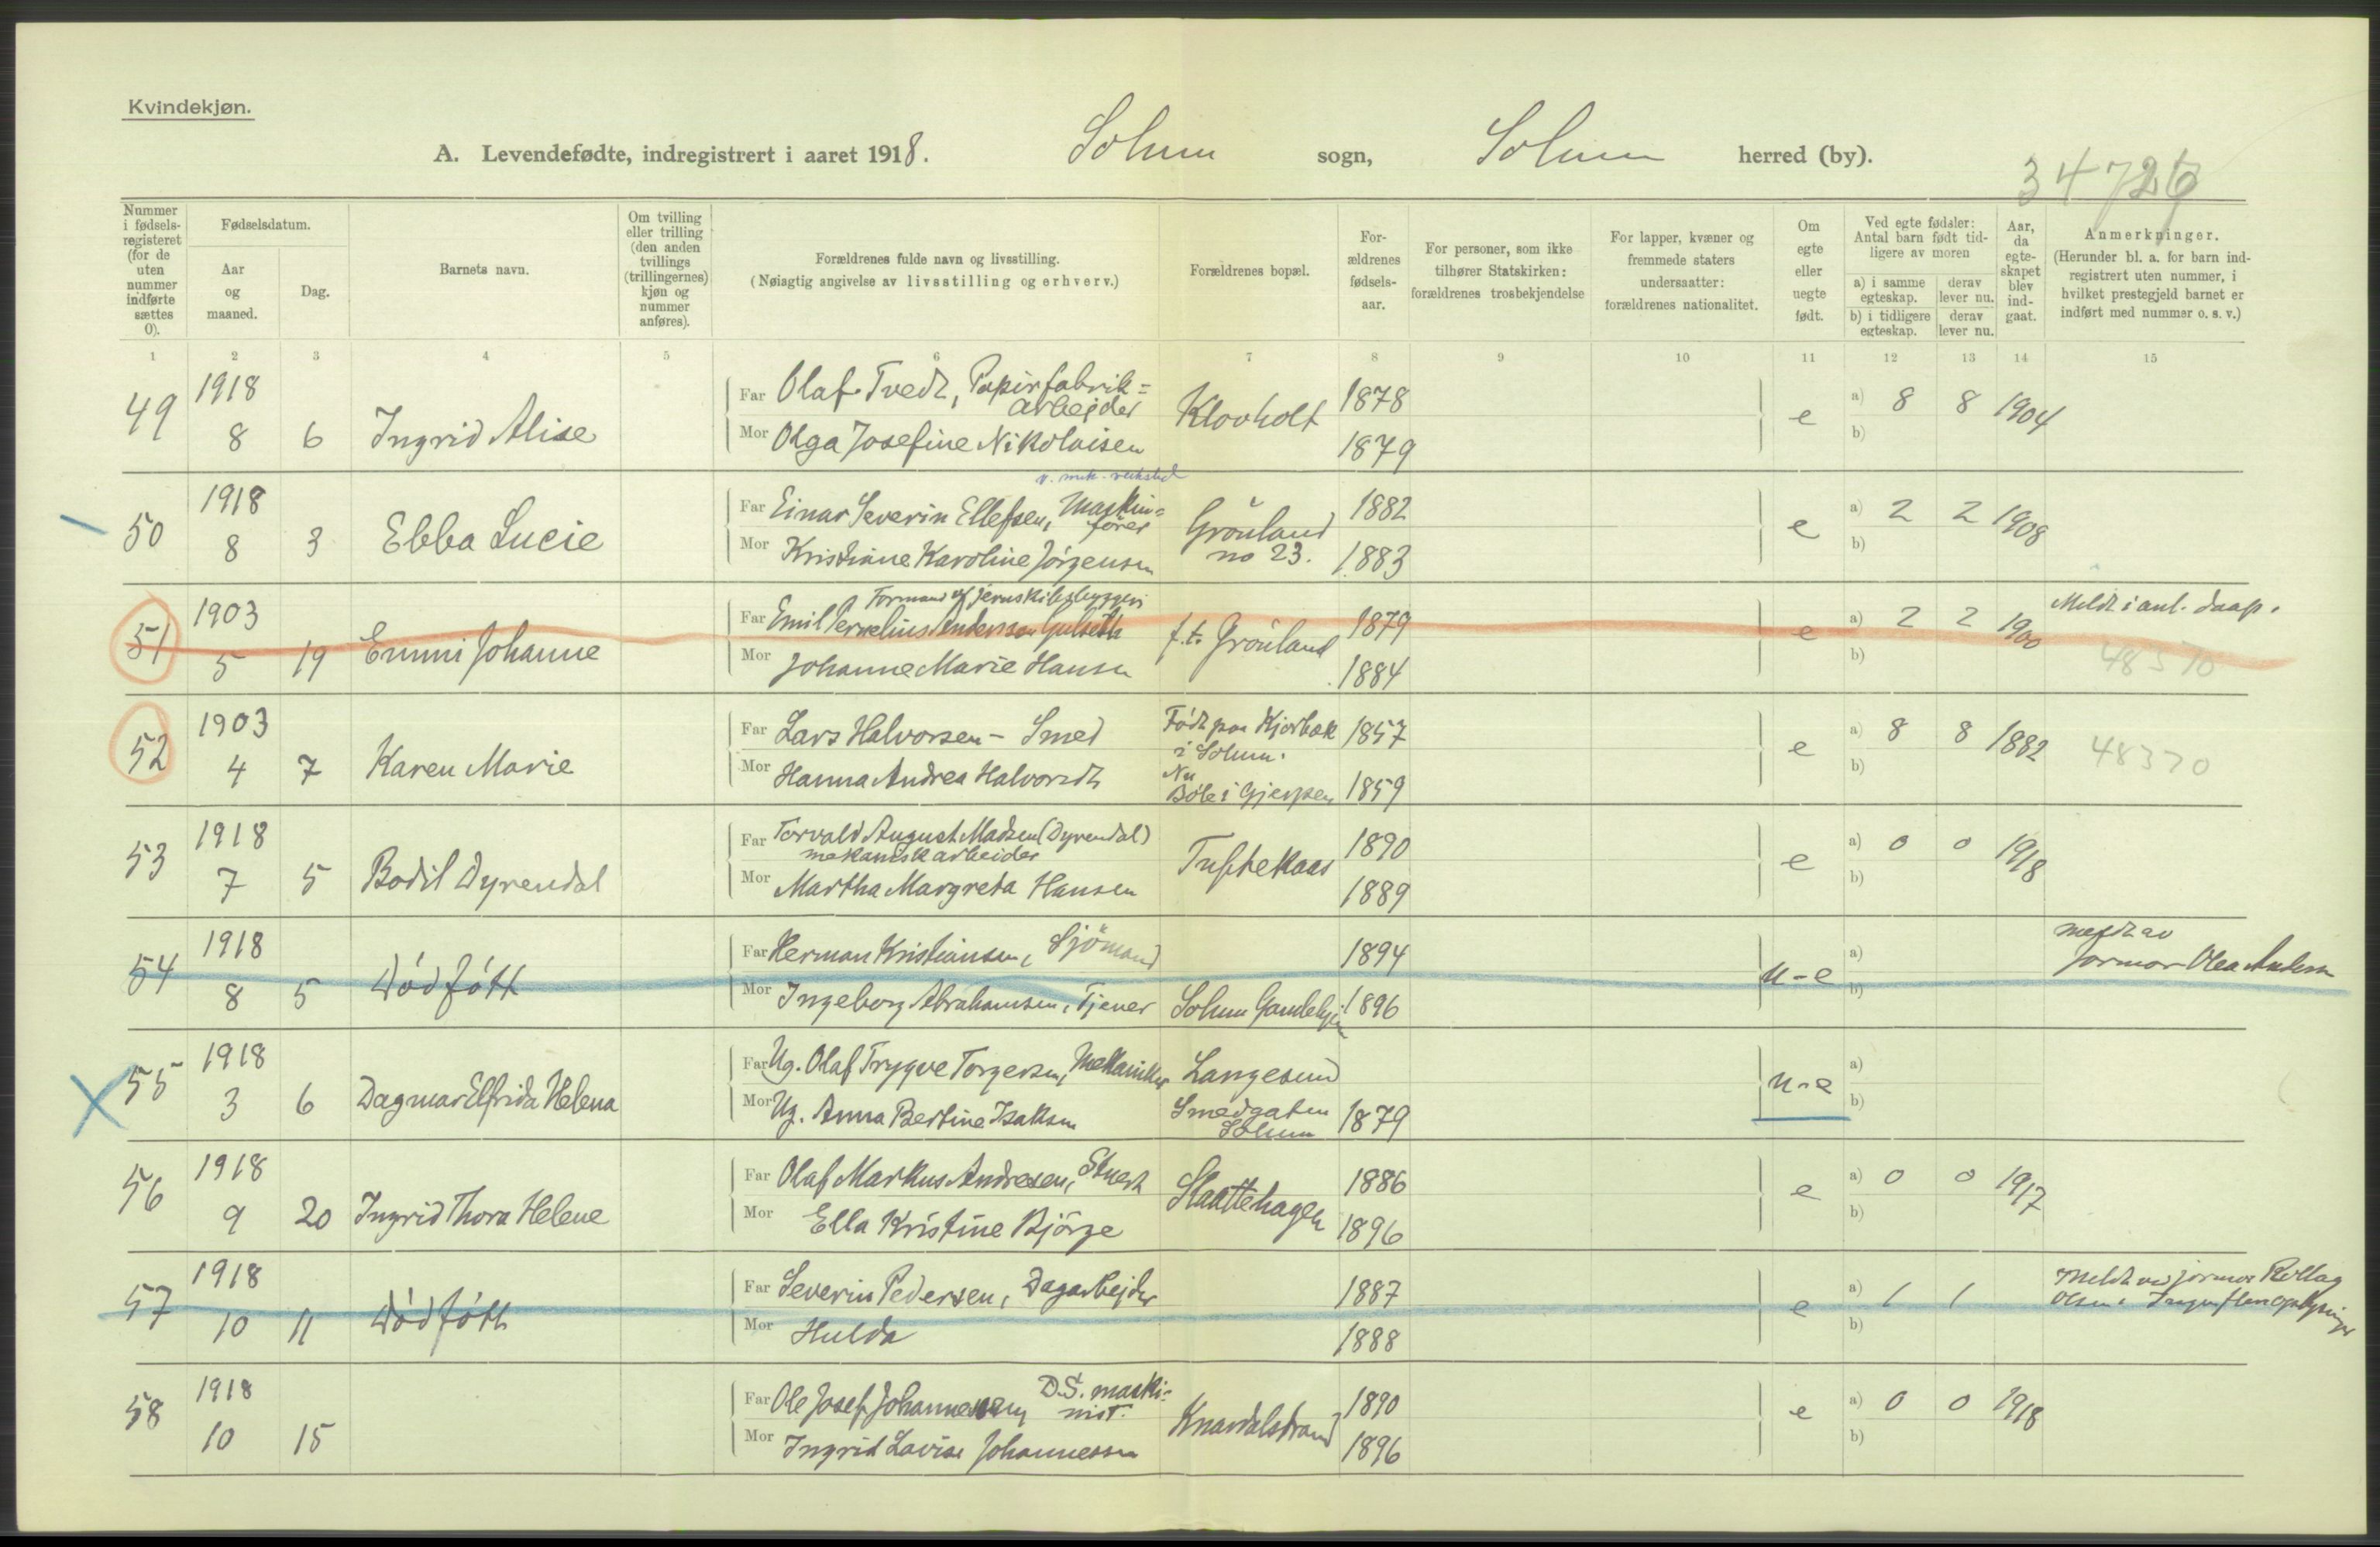 Kvindekjøn.
A. Levendefødte, indregistrert i aaret 1918. Solum sogn, Solum herred (by).
Nummer i fødsels-registeret (for de uten nummer indførte sættes 0).
Fødselsdatum.
Aar og maaned.
Dag.
Barnets navn.
Om tvilling eller trilling (den anden tvillings (trillingernes) kjøn og nummer anføres).
Forældrenes fulde navn og livsstilling.
(Nøiagtig angivelse av livsstilling og erhverv.)
Forældrenes bopæl.
For-ældrenes fødsels-aar.
For personer, som ikke tilhører Statskirken: forældrenes trosbekjendelse
For lapper, kvæner og fremmede staters undersaatter: forældrenes nationalitet.
Om egte eller uegte født.
Ved egte fødsler: Antal barn født tid-ligere av moren
a) i samme egteskap.
derav lever nu.
b) i tidligere egteskap.
derav lever nu.
Aar, da egte-skapet blev ind-gaat.
Anmerkninger.
(Herunder bl. a. for barn ind-registrert uten nummer, i hvilket prestegjeld barnet er indført med nummer o. s. v.)
1 2 3 4 5 6 7 8 9 10 11 12 13 14 15
49 1918 8 6 Ingrid Alise
Far Olaf Tvedt, Papirfabrik=
arbejder
Mor Olga Josefine Nikolaisen
Klovholt 1878 1879 e a) 8 8 1904 b)
50 1918 8 3 Ebba Lucie
v. mek. verksted
Far Einar Severin Ellefsen, Maskin=
fører
Mor Kristiane Karoline Jörgensen
Grönland
no 23. 1882 1883 e a) 2 2 1908 b)
51 1903 5 19 Emmi Johanne
Formand v/ Jernskibsbyggeri
Far Emil Andersen Gulseth
Mor Johanne Marie Hansen
f.t. Grönland 1879 1884 e a) 2 2 1900 b)
Meldt i anl. daap.
48370
52 1903 4 7 Karen Marie
Far Lars Halvorsen - Smed
Mor Hanna Andrea Halvorsdt
Födt paa Kjorbæk
i Solum.
Nu
Böle i Gjerpen 1857 1859 e a) 8 8 1882 b)
48370
53 1918 7 5 Bodil Dyrendal
Far Torvald August Madsen (Dyrendal)
mekanisk arbeider
Mor Martha Margreta Hansen
Tuftekaas 1890 1889 e a) 0 0 1918 b)
54 1918 8 5 Dödfött
Far Herman Kristiansen, Sjömand
Mor Ingeborg Abrahamsen, Tjener
Solum Gamlehjem 1894 1896 u-e a) b)
meldt av
jormor Olea Andersen
55 1918 3 6 Dagmar Elfrida Helena
Far Ug. Olaf Trygve Torgersen, Mekaniker
Mor Ug. Anna Bertine Isaksen
Langesund
Smedgaten
Solum 1879 u-e a) b)
56 1918 9 20 Ingrid Thora Helene
Far Olaf Markus Andresen, Stuert
Mor Ella Kristine Björge
Slaattehagen 1886 1896 e a) 0 0 1917 b)
57 1918 10 11 Dödfött
Far Severin Pedersen, Dagarbejder
Mor Hulda
1887 1888 e a) 1 1 b)
Meldt ved jormor Rollag
Olsen. Ingen flere oplysninger
58 1918 10 15
Far Ole Josef Johannessen, D.S. maski-
nist.
Mor Ingrid Lovise Johannessen
Knardalstrand 1890 1896 e a) 0 0 1918 b)